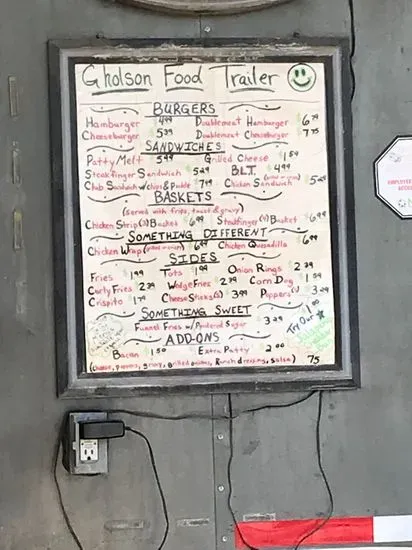 Gholson Food Trailer
BURGERS
Hamburger 4.99 Doublemeat Hamburger 6.79
Cheeseburger 5.39 Doublemeat Cheeseburger 7.75
SANDWICHES
Patty Melt 5.49 Grilled Cheese 1.59
Steakfinger Sandwich 5.49 BLT. 4.99
Club Sandwich w/chips & Pickle 7.49 Chicken Sandwich 5.49
BASKETS
(Served with fries, toast & gravy)
Chicken Strip (3) Basket 6.99 Steakfinger (4) Basket 6.99
SOMETHING DIFFERENT
Chicken Wrap 6.49 Chicken Quesadilla 6.99
SIDES
Fries 1.99 Tots 1.99 Onion Rings 2.39
Curly Fries 2.39 Wedge Fries 2.39 Corn Dog 1.59
Crispito 1.79 Cheese Sticks 3.99 Peppers 3.29
SOMETHING SWEET
Funnel Fries w/ Powdered Sugar 3.29
Try Our
ADD-ONS
Bacon 1.50 Extra Patty 2.00
(Cheese, Peppers, Gravy, Grilled onions, Ranch dressing, Salsa) .75
EMPLOYEES